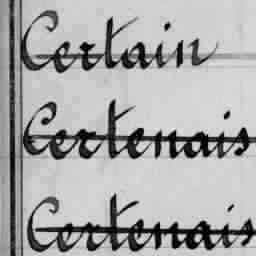 Certain
Certenais
Certenais